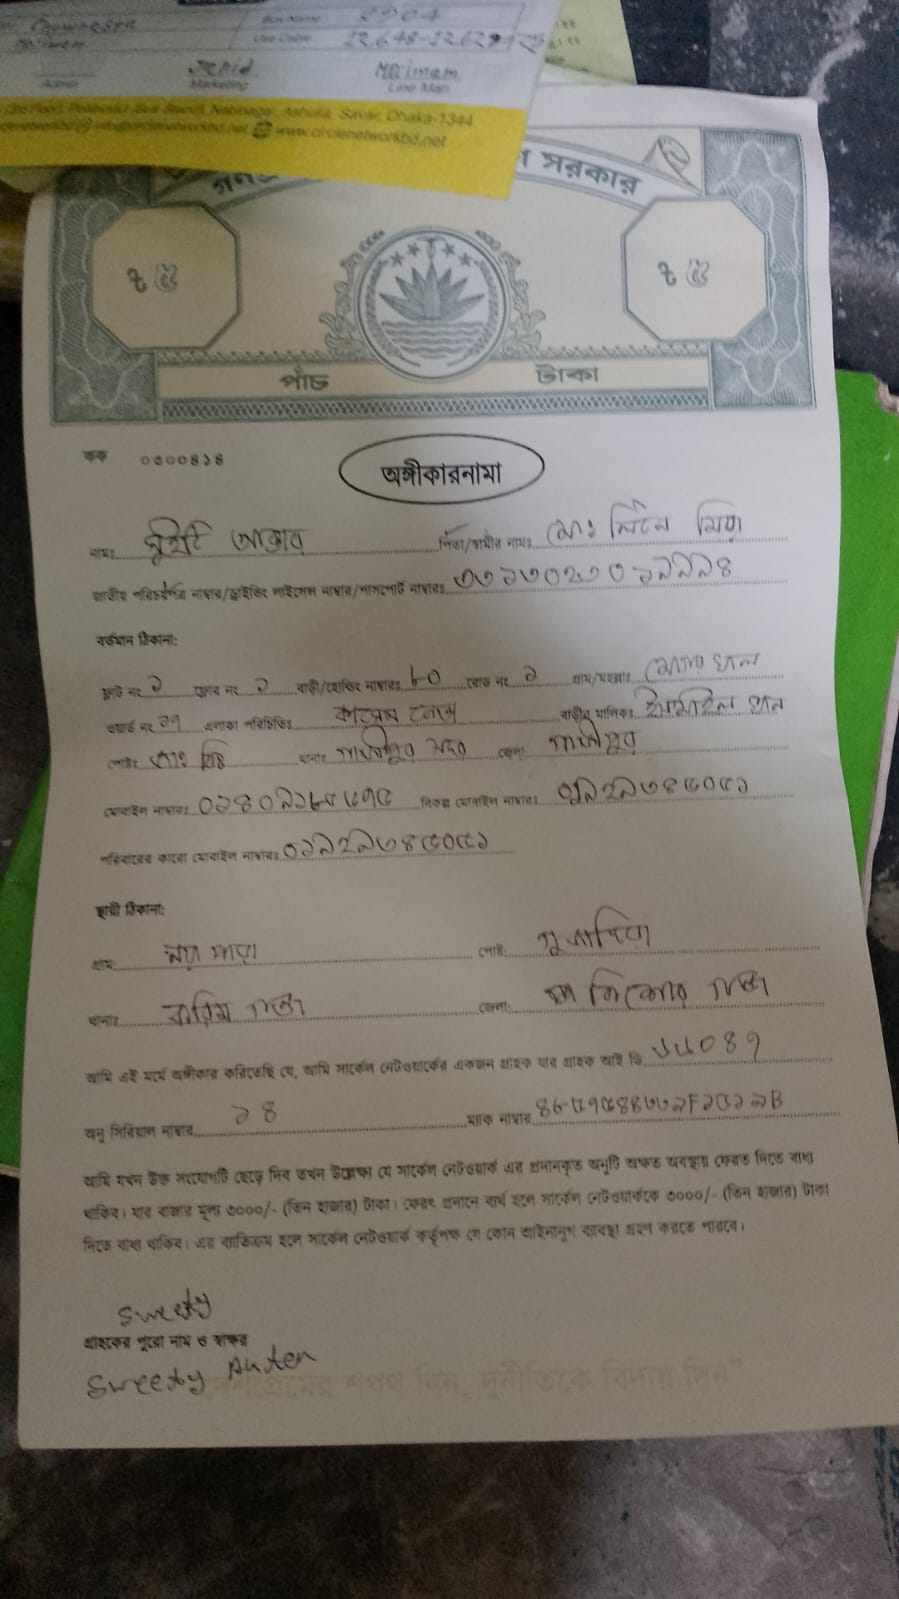 2904
Use Cable 12.648-12.629
Jahid
Moimam
Admin Marketing Line Man
Nabinagar, Ashulia, Savar, Dhaka-1344
www.circlenetworkbd.net
সরকার
৳ ৫ ৳ ৫
পাঁচ টাকা
কক ০৩০০৪১৪
অঙ্গীকারনামা
নামঃ সুইটি আক্তার পিতা/স্বামীর নামঃ মোঃ লিটন মিয়া
জাতীয় পরিচয়পত্র নাম্বার/ড্রাইভিং লাইসেন্স নাম্বার/পাসপোর্ট নাম্বারঃ
বর্তমান ঠিকানা:
ফ্লাট নং ১ ফ্লোর নং ১ বাড়ী/হোল্ডিং নাম্বারঃ ৮০ রোড নং ১ গ্রাম/মহল্লাঃ
ওয়ার্ড নং ১৭ এলাকা পরিচিতিঃ বাড়ীর মালিকঃ ইসমাইল খান
পোষ্টঃ থানাঃ গাজীপুর সদর জেলাঃ গাজীপুর
মোবাইল নাম্বারঃ বিকল্প মোবাইল নাম্বারঃ ০১৯২৯৩৪৫০৫১
পরিবারের কারো মোবাইল নাম্বারঃ ০১৯২৯৩৪৫০৫১
স্থায়ী ঠিকানা:
গ্রামঃ নয়া পাড়া পোষ্ট: গুজাদিয়া
থানাঃ করিম গঞ্জ জেলা: কিশোর গঞ্জ
আমি এই মর্মে অঙ্গীকার করিতেছি যে, আমি সার্কেল নেটওয়ার্কের একজন গ্রাহক যার গ্রাহক আই ডি
অনু সিরিয়াল নাম্বার ১৪ ম্যাক নাম্বার
আমি যখন উক্ত সংযোগটি ছেড়ে দিব তখন উল্লেক্ষ্য যে সার্কেল নেটওয়ার্ক এর প্রদানকৃত অনুটি অক্ষত অবস্থায় ফেরত দিতে বাধ্য
থাকিব। যার বাজার মূল্য ৩০০০/- (তিন হাজার) টাকা। ফেরৎ প্রদানে ব্যর্থ হলে সার্কেল নেটওয়ার্ককে ৩০০০/- (তিন হাজার) টাকা
দিতে বাধ্য থাকিব। এর ব্যতিক্রম হলে সার্কেল নেটওয়ার্ক কর্তৃপক্ষ যে কোন আইনানুগ ব্যবস্থা গ্রহণ করতে পারবে।
Sweety
গ্রাহকের পুরো নাম ও স্বাক্ষর
Sweety Akter
দেশপ্রেমের শপথ নিন, দুর্নীতিকে বিদায় দিন"